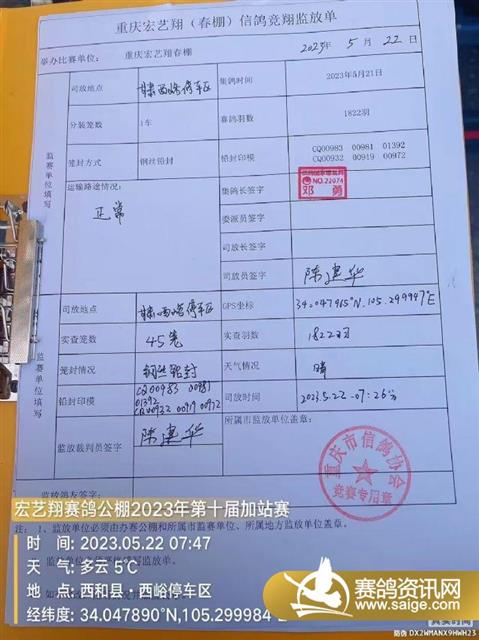 重庆宏艺翔（春棚）信鸽竞翔监放单
举办比赛单位： 重庆宏艺翔春棚 2023年 5月 22日
司放地点 甘肃西峪停车区 集鸽时间 2023年5月21日
分装笼数 1车 赛鸽羽数 1822羽
笼封方式 钢丝铅封 铅封印模 CQ00983 00981 01392
CQ00932 00919 00972
监赛单位填写
运输路途情况： 正常
集鸽长签字 NO.22074 邓勇
委派员签字
司放长签字
司放员签字 陈建华
司放地点 甘肃西峪停车区 GPS坐标 34.047965°N,105.299997°E
实查笼数 45笼 实查羽数 1822羽
笼封情况 钢丝铅封 天气情况 晴
铅封印模 CQ00983 00981
01392
CQ00932 00919 00972
司放时间 2023.5.22-07:26分
监放单位填写
监放裁判员签字 陈建华
所属市监放单位盖章：
重庆市信鸽协会
竞赛专用章
监放鸽友签字
宏艺翔赛鸽公棚2023年第十届加站赛
注： 1、监放单位必须由办赛公棚和所属市监赛单位、所属地方监放单位盖章。
时 间：2023.05.22 07:47
天 气：多云 5℃
地 点：西和县·西峪停车区
经纬度：34.047890°N,105.299984°E
赛鸽资讯网
www.saige.com
真实时间
防伪 DX2WMANX9HWH23